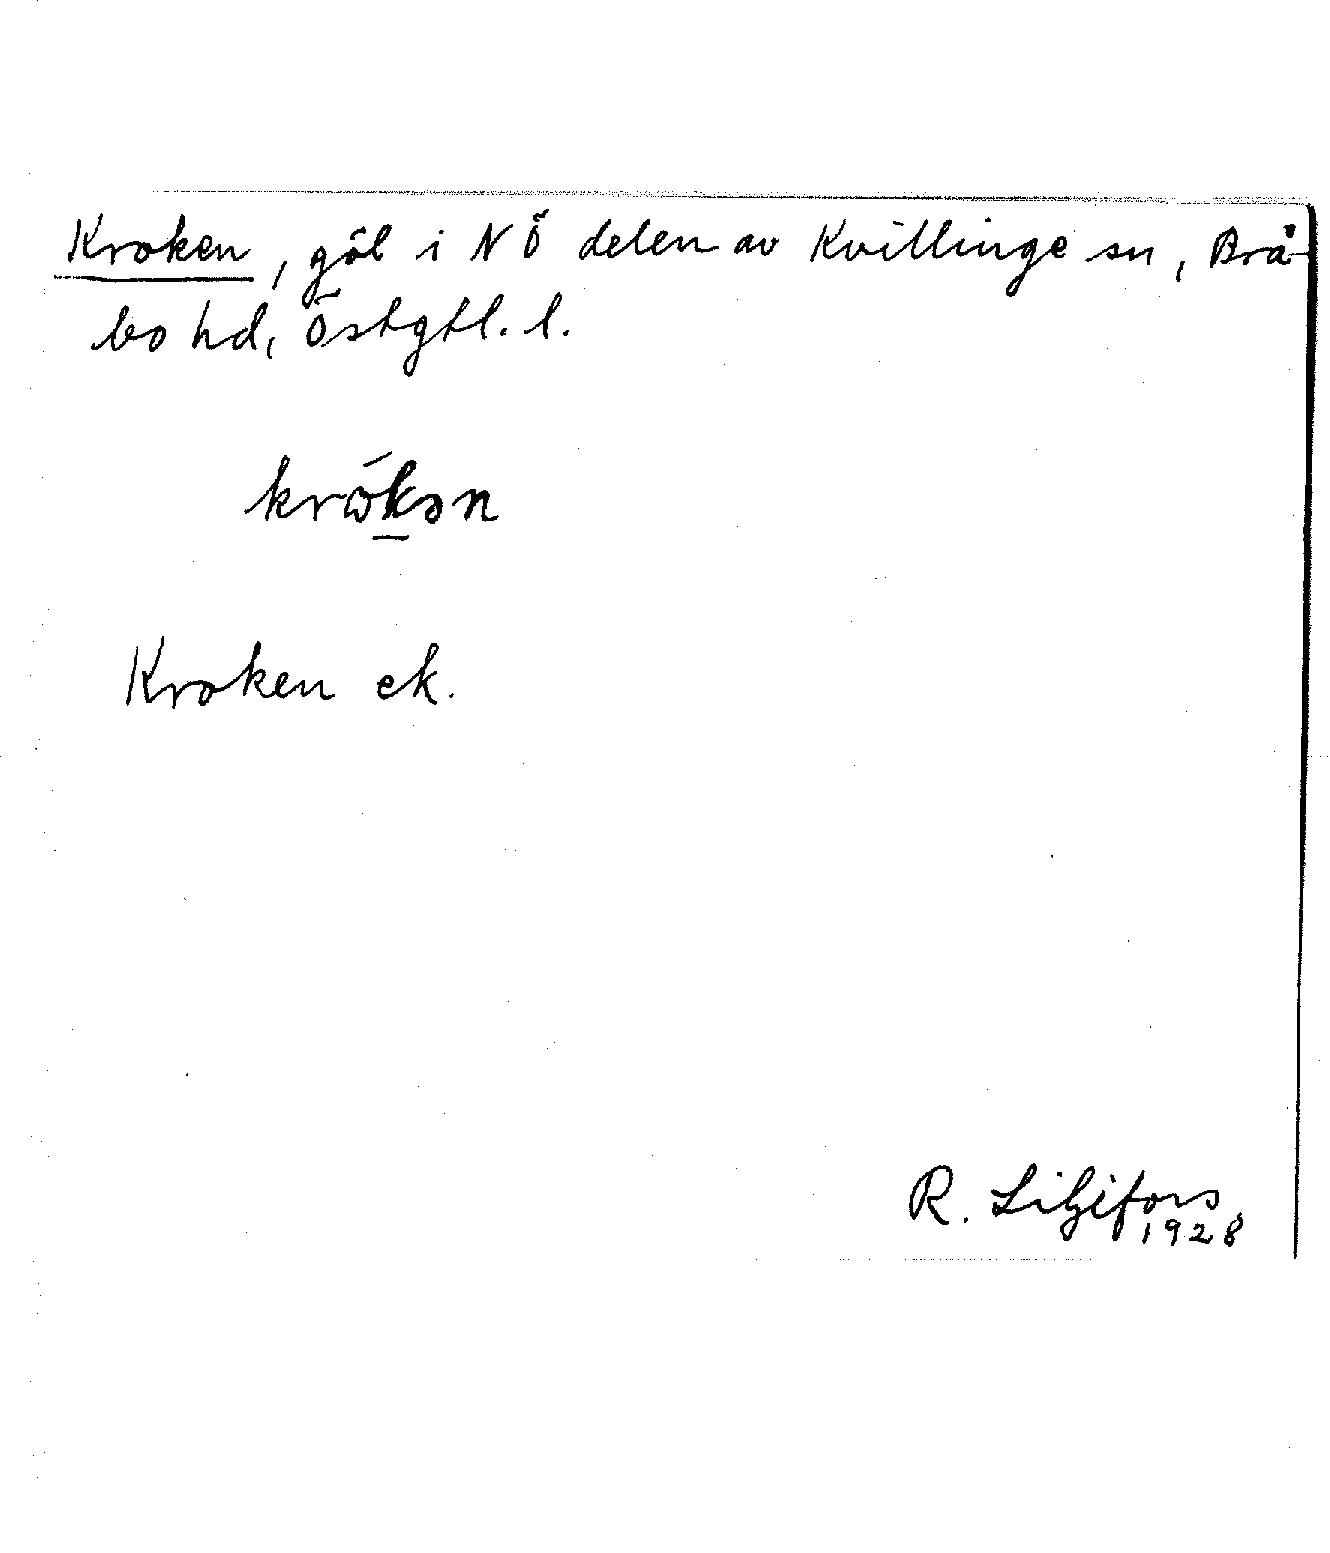 Kroken, göl i NÖ delen av Kvillinge sn, Brå-
bo hd, Östgtl. l.
krɷ́kən
Kroken ek.
R. Liljefors
1928